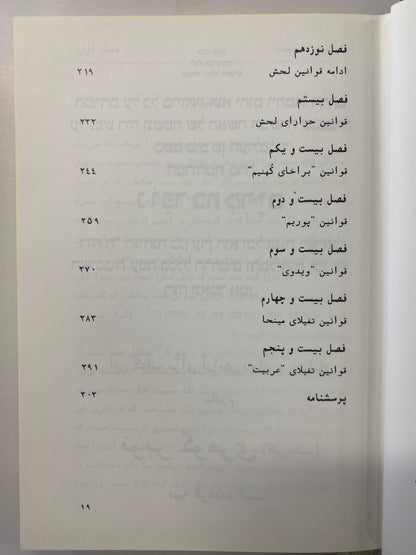 فصل نوزدهم
ادامه قوانین لحش ۲۱۹
فصل بیستم
قوانین حزارای لحش ۲۳۲
فصل بیست و یکم
قوانین "براخای کُهنیم" ۲۴۴
فصل بیست و دوم
قوانین "پوریم" ۲۵۹
فصل بیست و سوم
قوانین "ویدوی" ۲۷۰
فصل بیست و چهارم
قوانین تفیلای مینحا ۲۸۳
فصل بیست و پنجم
قوانین تفیلای "عربیت" ۲۹۱
پرسشنامه ۳۰۳
۱۹